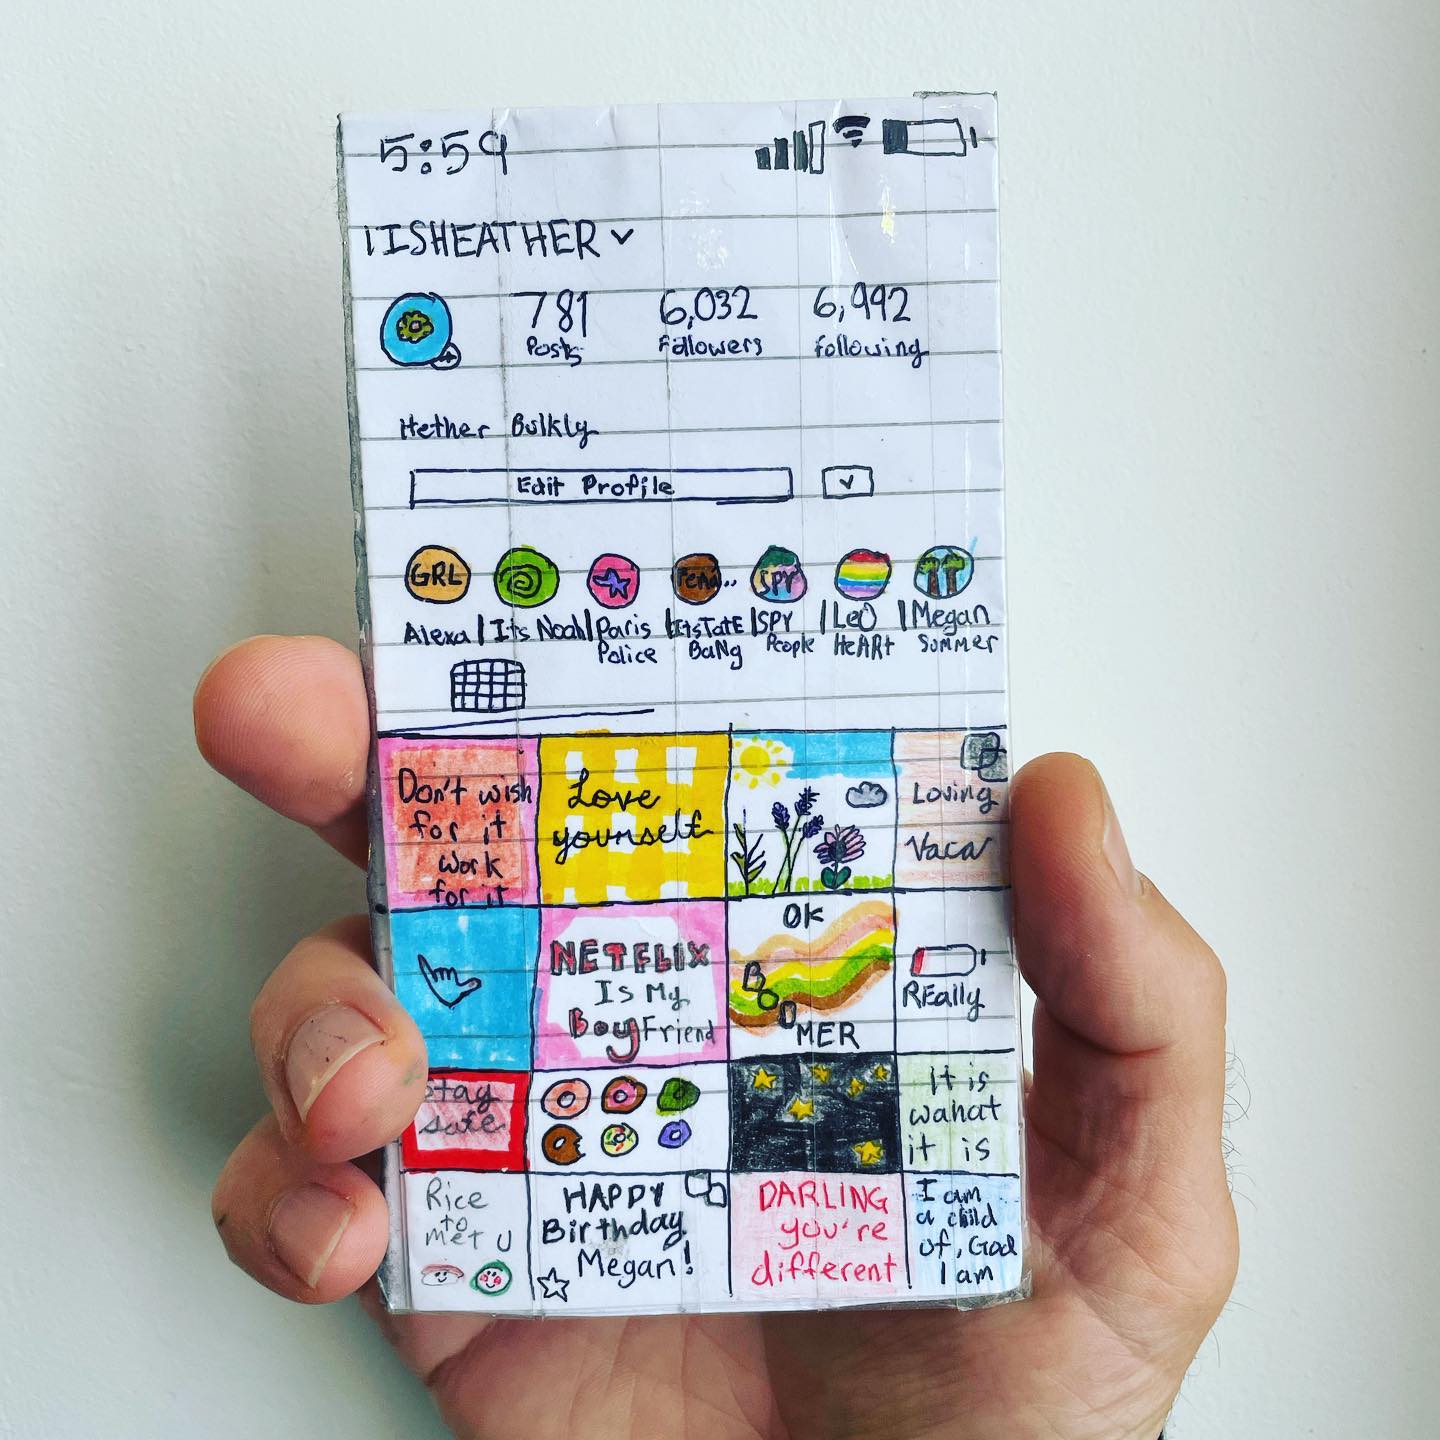 5:59
IISHEATHER
781 6,032 6,992
Posts Followers Following
Hether Bulkly
Edit Profile
GRL SPY
Alexa | Its Noah | Paris Police | ItsTatE BaNg | SPY People | LeO HeARt | Megan Summer
Don't wish
for it
work
for it
Love
yourself
Loving
Vaca
NETFLIX
Is My
BoyFriend
OK
BO
OMER
REally
stay
safe
it is
wahat
it is
Rice
to
met U
HAPPY
Birthday
Megan!
DARLING
you're
different
I am
a child
of, God
I am